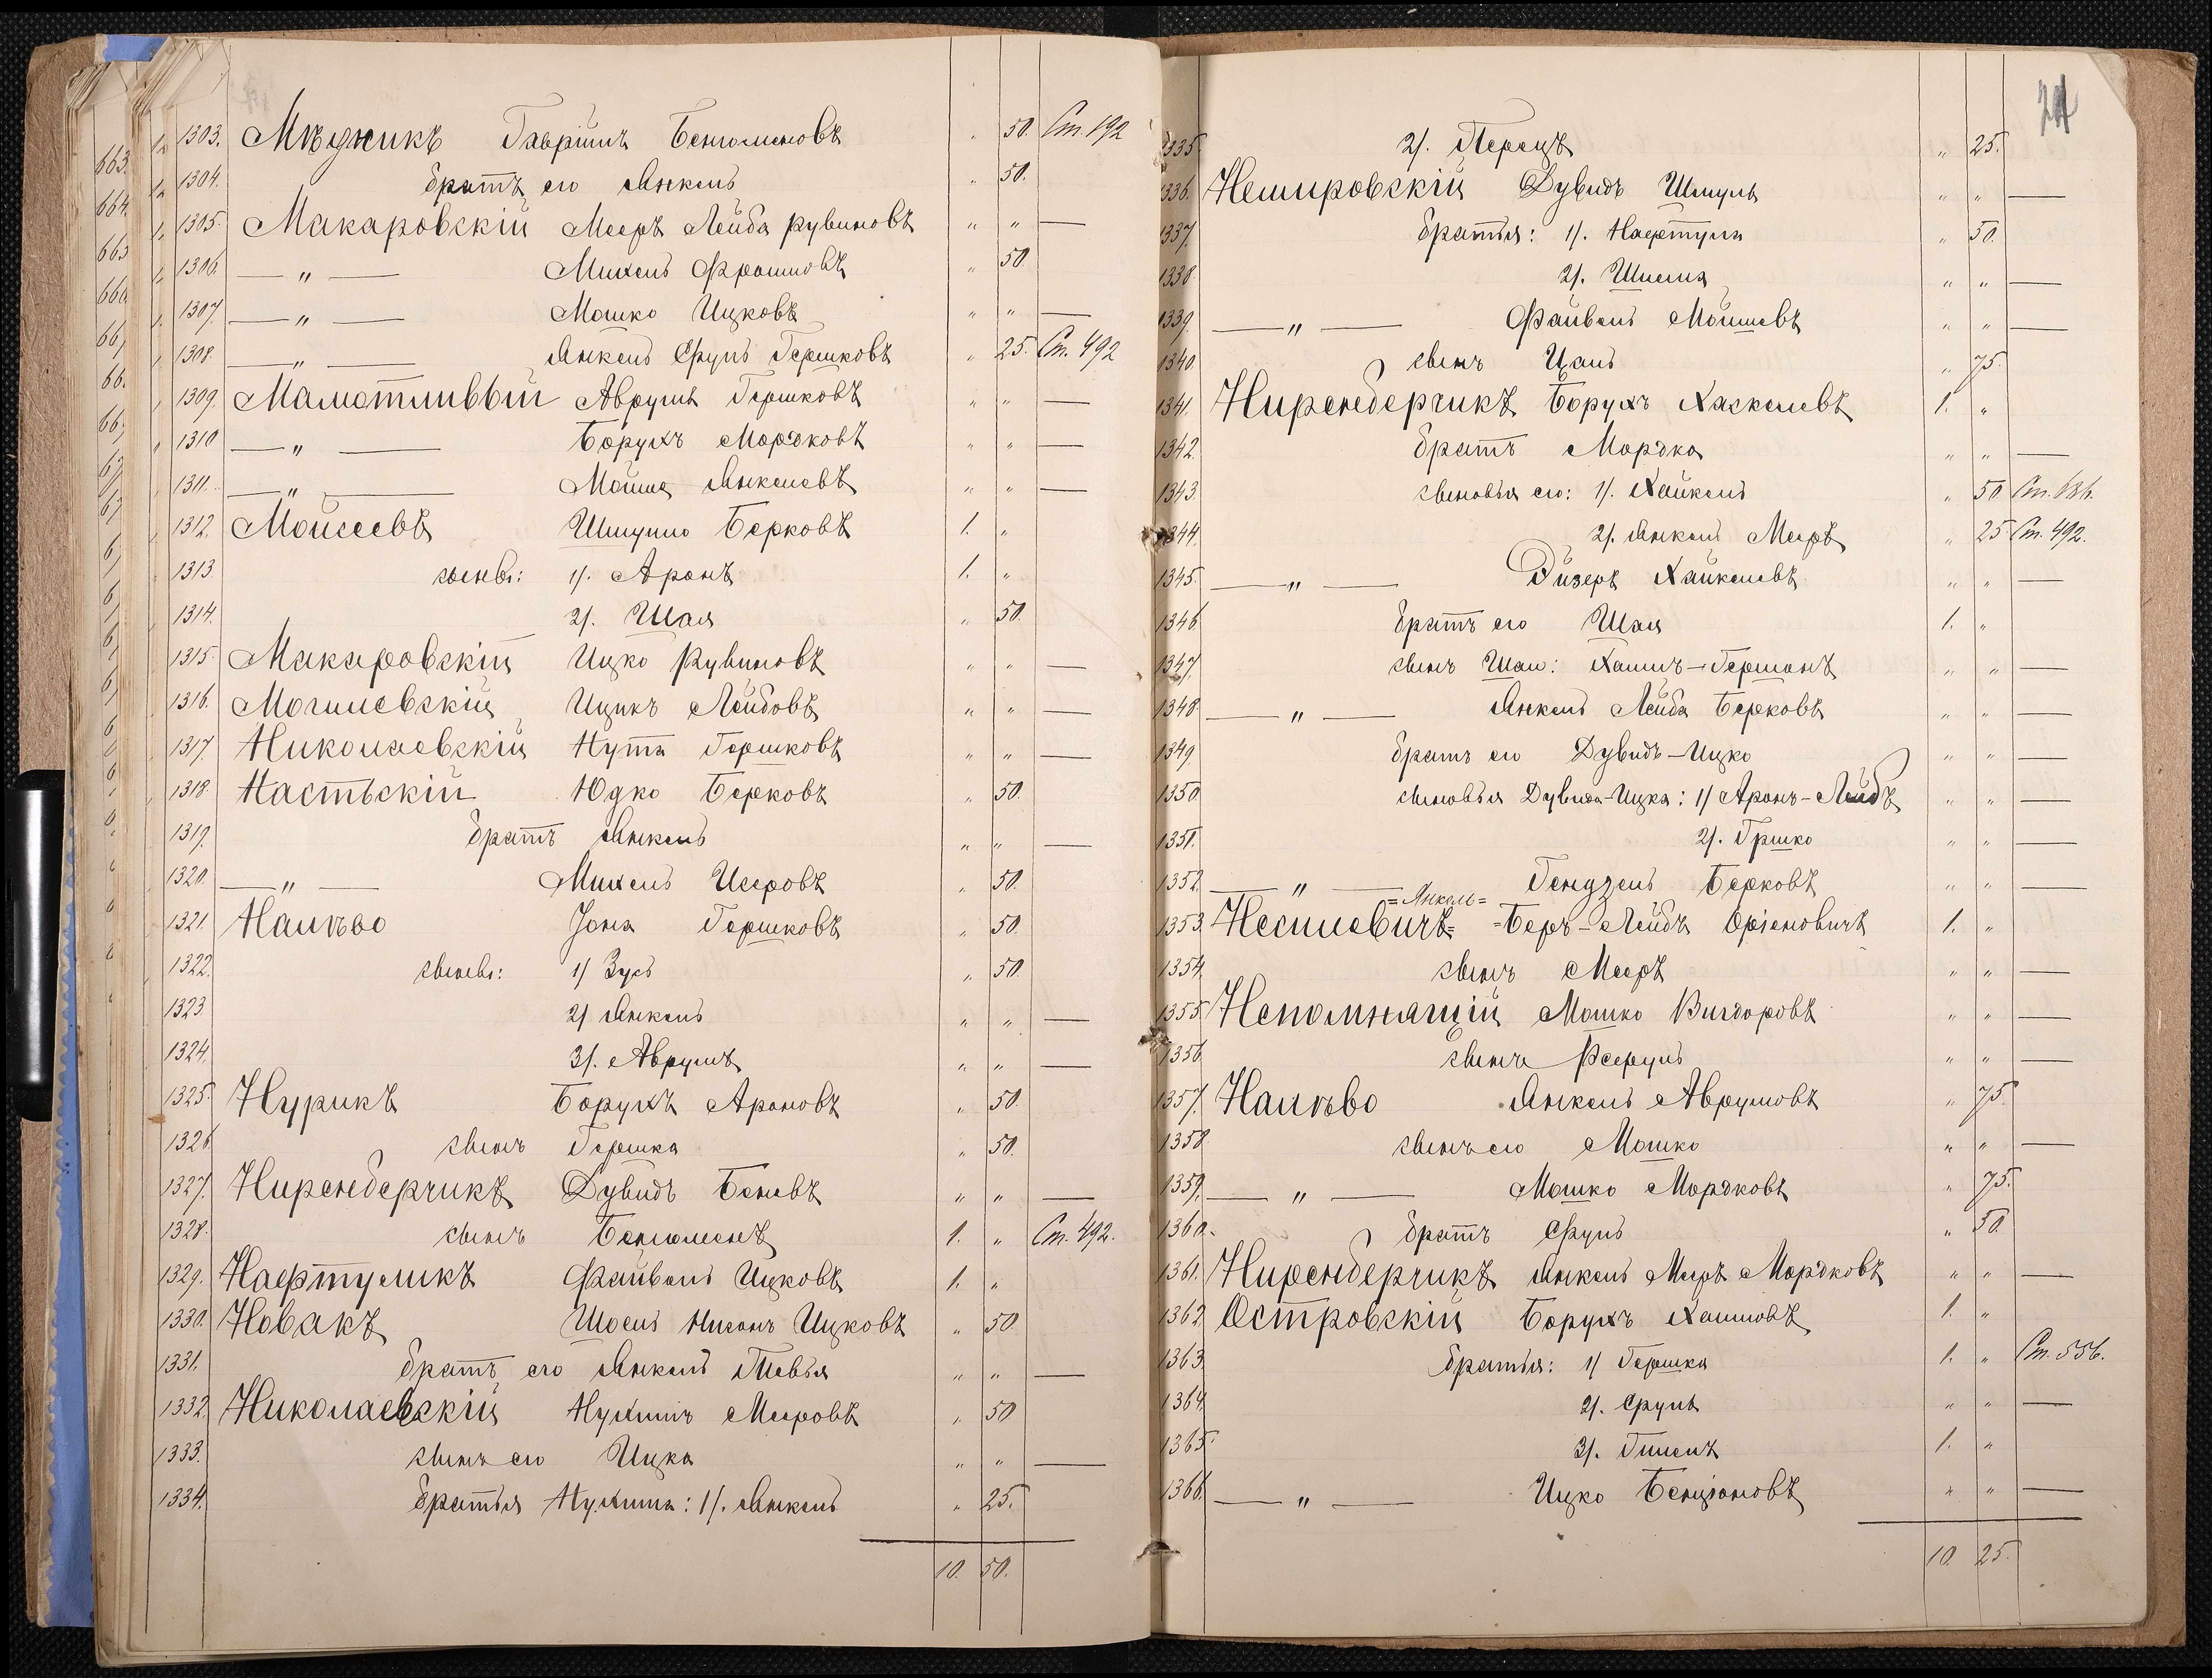 1303. Мѣдникъ Гавріилъ Беньоминовъ „ 50. Ст. 192
1304. братъ его Анкель „ 50.
1305. Макаровскій Мееръ Лейба Рувиновъ „ „ —
1306. — „ — Михель Фроимовъ „ 50.
1307. — „ — Мошко Ицковъ „ „ —
1308. — „ — Янкель Сруль Гершковъ „ 25. Ст. 492
1309. Мамотливый Аврумъ Гершковъ „ „ —
1310 — „ — Борухъ Мордковъ „ „ —
1311. — „ — Мойше Янкелевъ „ „ —
1312. Мойсеевъ Шмуйло Берковъ 1. „
1313 сыновъ: 1/. Аронъ 1. „
1314. 2/. Шая „ 50.
1315. Макаровскій Ицко Рувиновъ „ „ —
1316. Могилевскій Ицикъ Лейбовъ „ „ —
1317. Николаевскій Нута Гершковъ „ „ —
1318 Настьскій Юдко Берковъ „ 50.
1319. братъ Янкель „ „ —
1320. — „ — Михель Исеровъ „ 50.
1321. Наливо Іона Гершковъ „ 50.
1322. сыновъ: 1/ Зусь „ 50.
1323 2/ Янкель „ „ —
1324. 3/. Аврумъ „ „ —
1325. Нурикъ Борухъ Ароновъ „ 50.
1326 сынъ Гершка „ 50.
1327. Ниренберчикъ Дувидъ Беневъ „ „ —
1328. сынъ Беньоменъ 1. „ Ст. 492.
1329. Нафтуликъ Файвель Ицковъ 1. „
1330. Новакъ Шоель Нисонъ Ицковъ „ 50
1331. братъ его Янкель Тевья „ „ —
1332. Николаевскій Нухимъ Мееровъ „ 50
1333. сынъ его Ицка „ „ —
1334. братья Нухима: 1/. Янкель „ 25.
10. 50.
24
1335 2/. Перецъ „ 25.
1336. Немировскій Дувидъ Шмуль „ „ —
1337. братья: 1/. Нафтула „ 50.
1338. 2/. Шлема „ „ —
1339. — „ — Файвель Мойшевъ „ „ —
1340. сынъ Цаль „ 75.
1341. Ниренберчикъ Борухъ Хаскелевъ 1. „
1342. братъ Мордко „ „ —
1343. сыновья его: 1/. Хайкель „ 50 Ст. 686.
1344. 2/. Янкель Мееръ „ 25 Ст. 492.
1345. — „ — Эйзеръ Хайкелевъ „ „ —
1346 братъ его Шая 1. „
1347. сынъ Шаи: Хаимъ-Гершонъ „ „ —
1348. — „ — Янкель Лейба Берковъ „ „ —
1349 братъ его Дувидъ-Ицко „ „ —
1350 сыновья Дувида-Ицка: 1/ Аронъ-Лейбъ „ „ —
1351. 2/. Гршко „ „ —
1352. — „ — Гендзель Берковъ „ „ —
=Янкель=
1353. Несилевичъ= =Беръ-Лейбъ Оріоновичъ 1. „
1354. сынъ Мееръ „ „ —
1355. Непомнящій Мошко Вигдоровъ „ „ —
1356. сынъ Рсеруль „ „ —
1357. Наливо Янкель Аврумовъ „ 75.
1358. сынъ его Мошко „ „ —
1359. — „ — Мошко Мордковъ „ 75.
1360. братъ Сруль „ 50
1361. Ниренберчикъ Янкель Мееръ Мордковъ „ „ —
1362 Островскій Борухъ Хаимовъ 1. „
1363. братья: 1/ Гершка 1. „ Ст. 556.
1364. 2/. Сруль „ „ —
1365. 3/. Гилелъ 1. „
1366. — „ — Ицко Бенціоновъ „ „ —
10. 25.